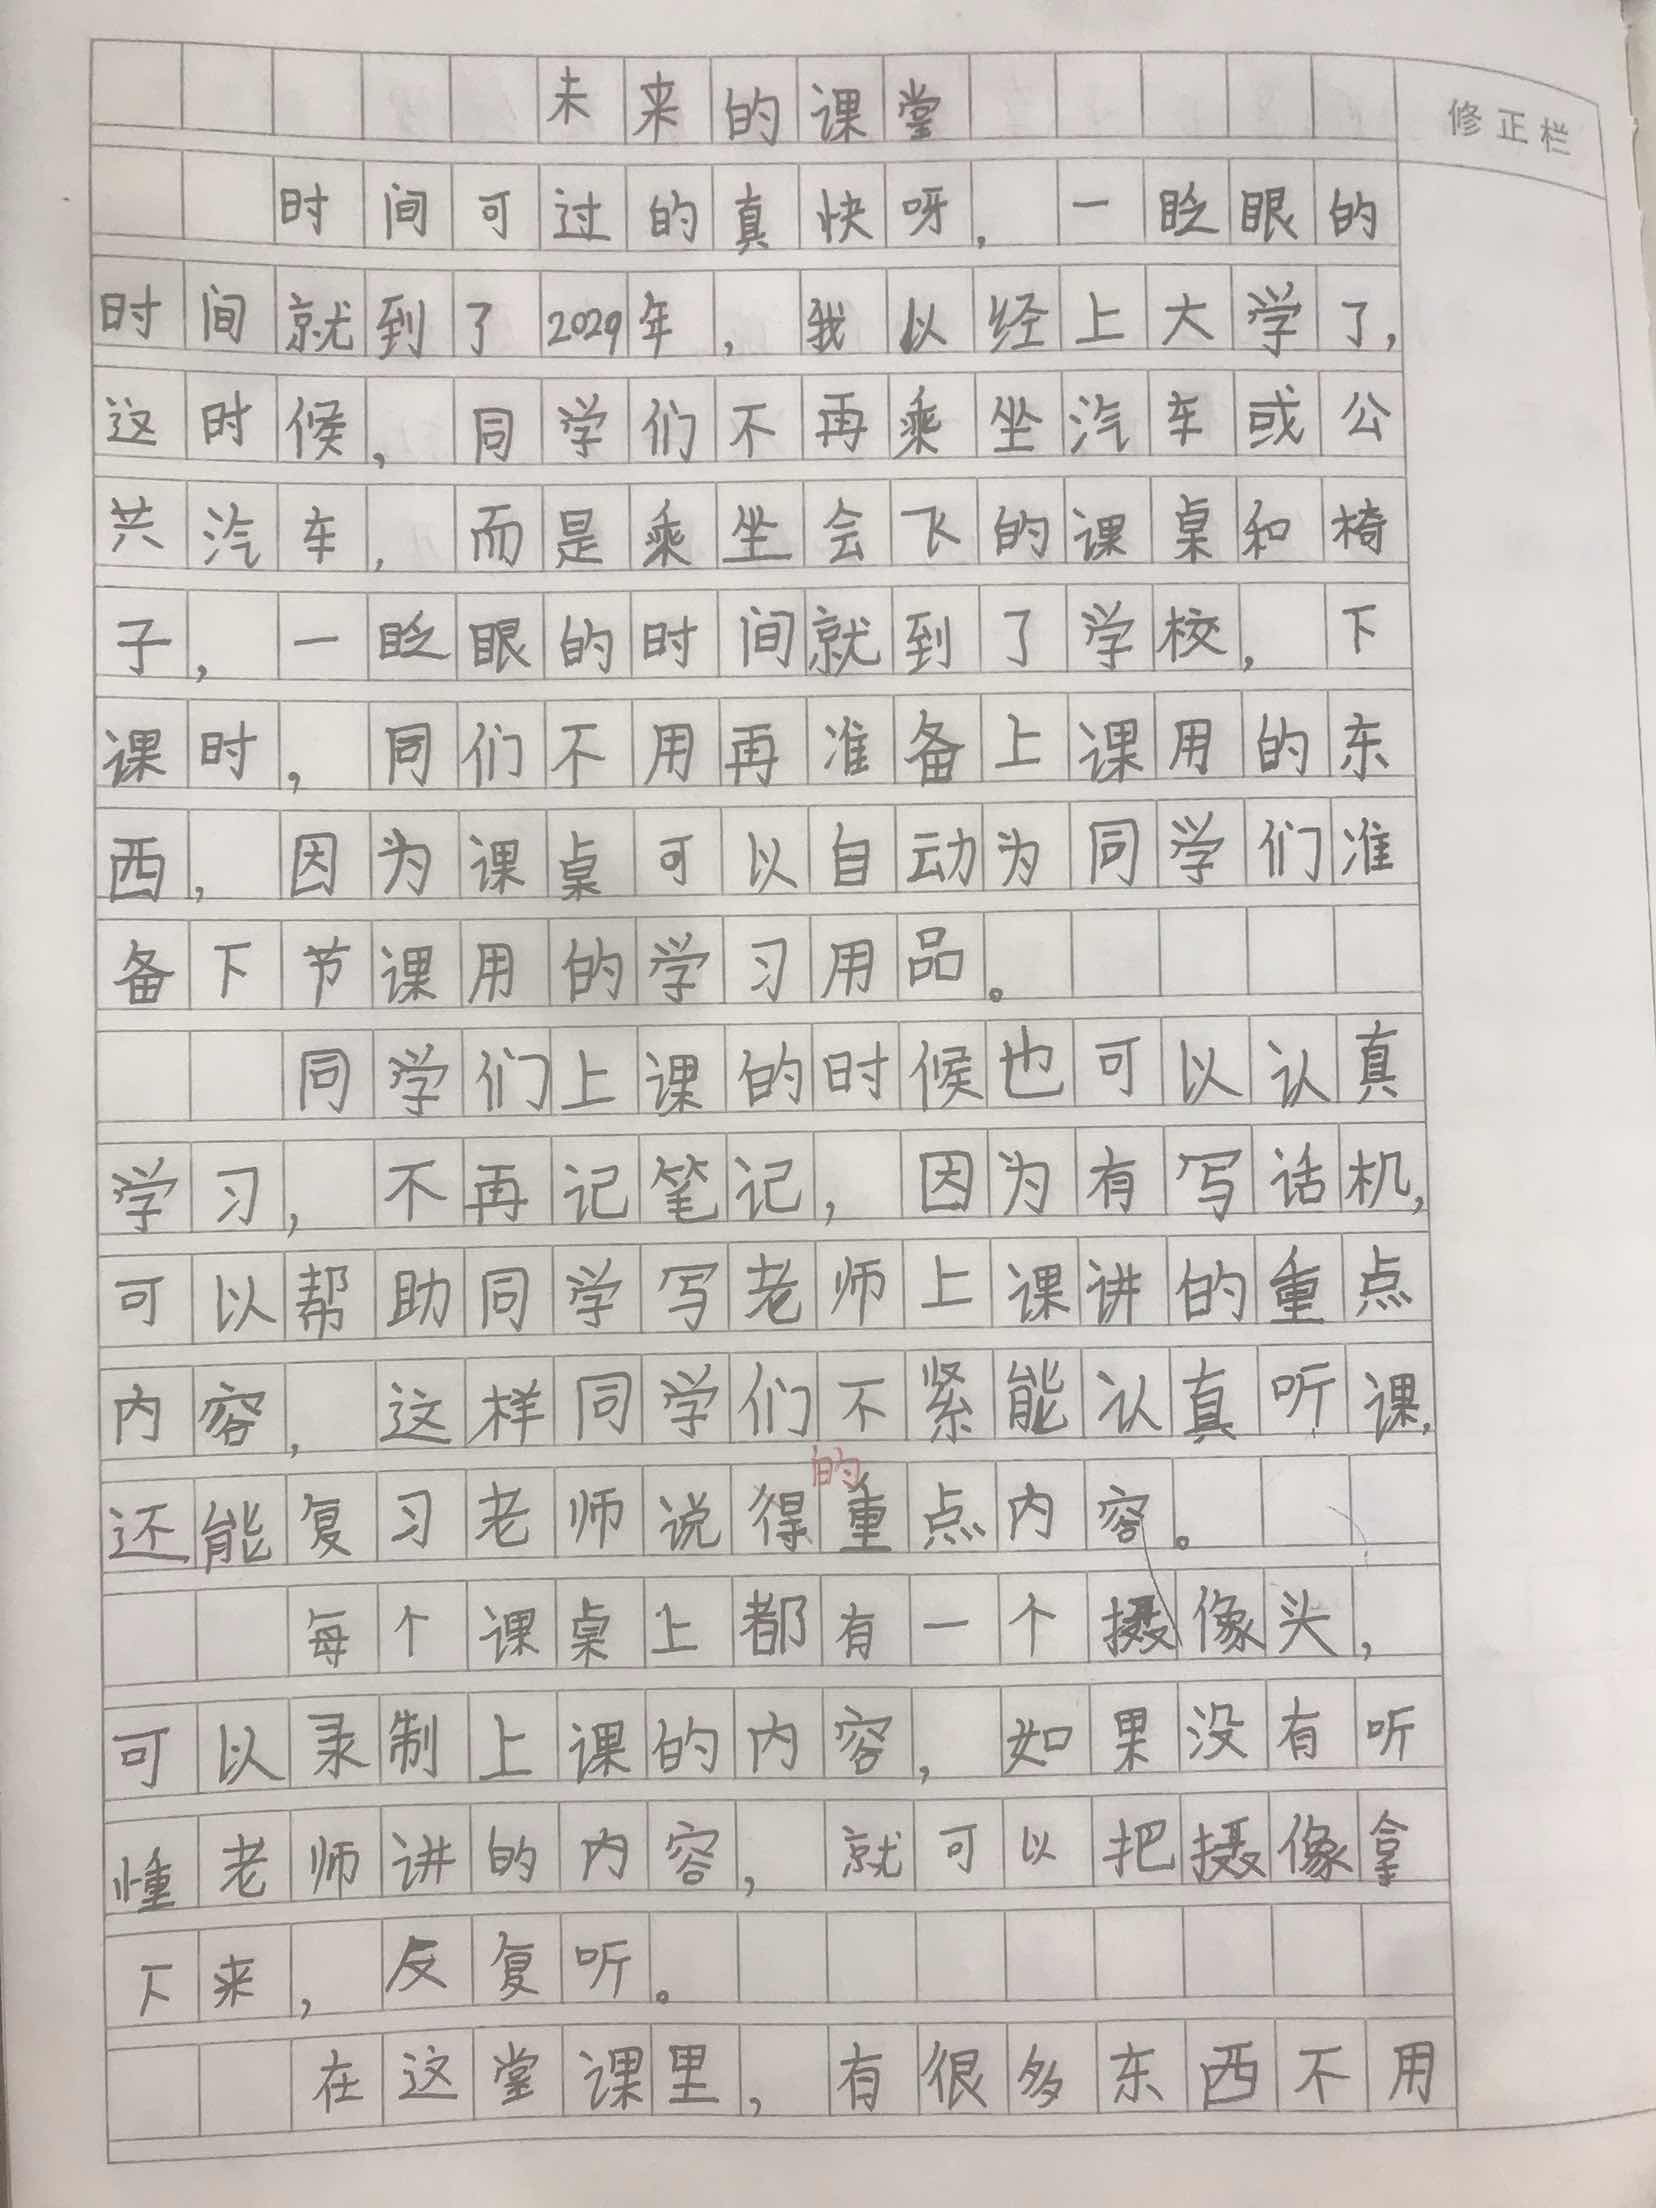 未来的课堂
修正栏
时间可过的真快呀，一眨眼的
时间就到了2029年，我以经上大学了，
这时候，同学们不再乘坐汽车或公
共汽车，而是乘坐会飞的课桌和椅
子，一眨眼的时间就到了学校，下
课时，同们不用再准备上课用的东
西，因为课桌可以自动为同学们准
备下节课用的学习用品。
同学们上课的时候也可以认真
学习，不再记笔记，因为有写话机，
可以帮助同学写老师上课讲的重点
内容，这样同学们不紧能认真听课，
的
还能复习老师说得重点内容。
每个课桌上都有一个摄像头，
可以录制上课的内容，如果没有听
懂老师讲的内容，就可以把摄像拿
下来，反复听。
在这堂课里，有很多东西不用